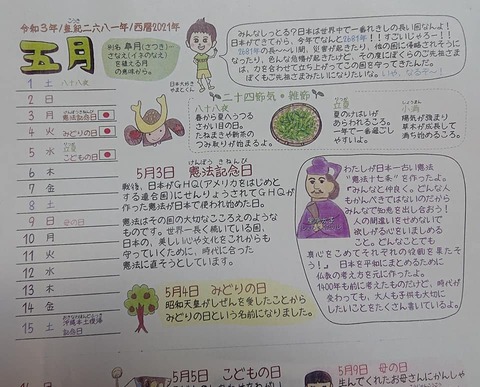 令和3年/皇紀二六八一年/西暦2021年
五月
別名 皐月(さつき)…
さなえ(イネのなえ)
を植える月
の意味から。
日本大好き
やまとくん
みんなしっとる?日本は世界中で一番れきしの長い国なんよ!
日本ができてから、今年でなんと2681年!!すごいじゃろ〜。
2681年の長〜い間、災害が起きたり、他の国に侵略されそうに
なったり、色んな危機が起きたけど、その度にぼくらのご先祖さま
は、力を合わせて立ち上がってこの国を守ってきたんだ。
ぼくもご先祖さまみたいになりたいな。いや、なるぞ〜!
1 土 八十八夜
2 日
3 月 けんぽうきねんび 憲法記念日
4 火 みどりの日
5 水 立夏 こどもの日
6 木
7 金
8 土
9 日 母の日
10 月
11 火
12 水
13 木
14 金
15 土 沖縄本土復帰
記念日
二十四節気・雑節
八十八夜
春から夏へうつる
さかい目の日。
たねまきや新茶の
つみ取りが始まるよ。
立夏
夏のけはいが
あらわれるころ。
一年で一番過ごし
やすいよ。
しょうまん
小満
陽気が強まり
草木が成長して
満ち始めるころ。
5月3日 けんぽう きねんび 憲法記念日
戦後、日本がGHQ(アメリカをはじめと
する連合国)にせんりょうされてGHQが
作った憲法が日本で使われ始めた日。
憲法はその国の大切なこころえのような
ものです。世界一長く続いている国、
日本の、美しい心や文化をこれからも
守っていくために、時代に合った
憲法に直そうとしています。
わたしが日本一古い憲法
“憲法十七条”を作ったよ。
『みんなと仲良く。どんな人
もかんぺきではないのだから
みんなで知恵を出し合おう!
人の間違いをせめないで
欲しがる心をいましめる
こと。どんなことでも
真心をこめてそれぞれの役割を果たそ
う!』 日本を平和にまとめるために
仏教の考え方を元に作ったよ。
1400年も前に考えたものだけど、時代が
変わっても、大人も子供も大切に
したいことをたくさん書いているよ。
5月4日 みどりの日
昭和天皇がしぜんを愛したことから
みどりの日という名前になりました。
5月5日 こどもの日
5月9日 母の日
生んでくれたお母さんにかんしゃ